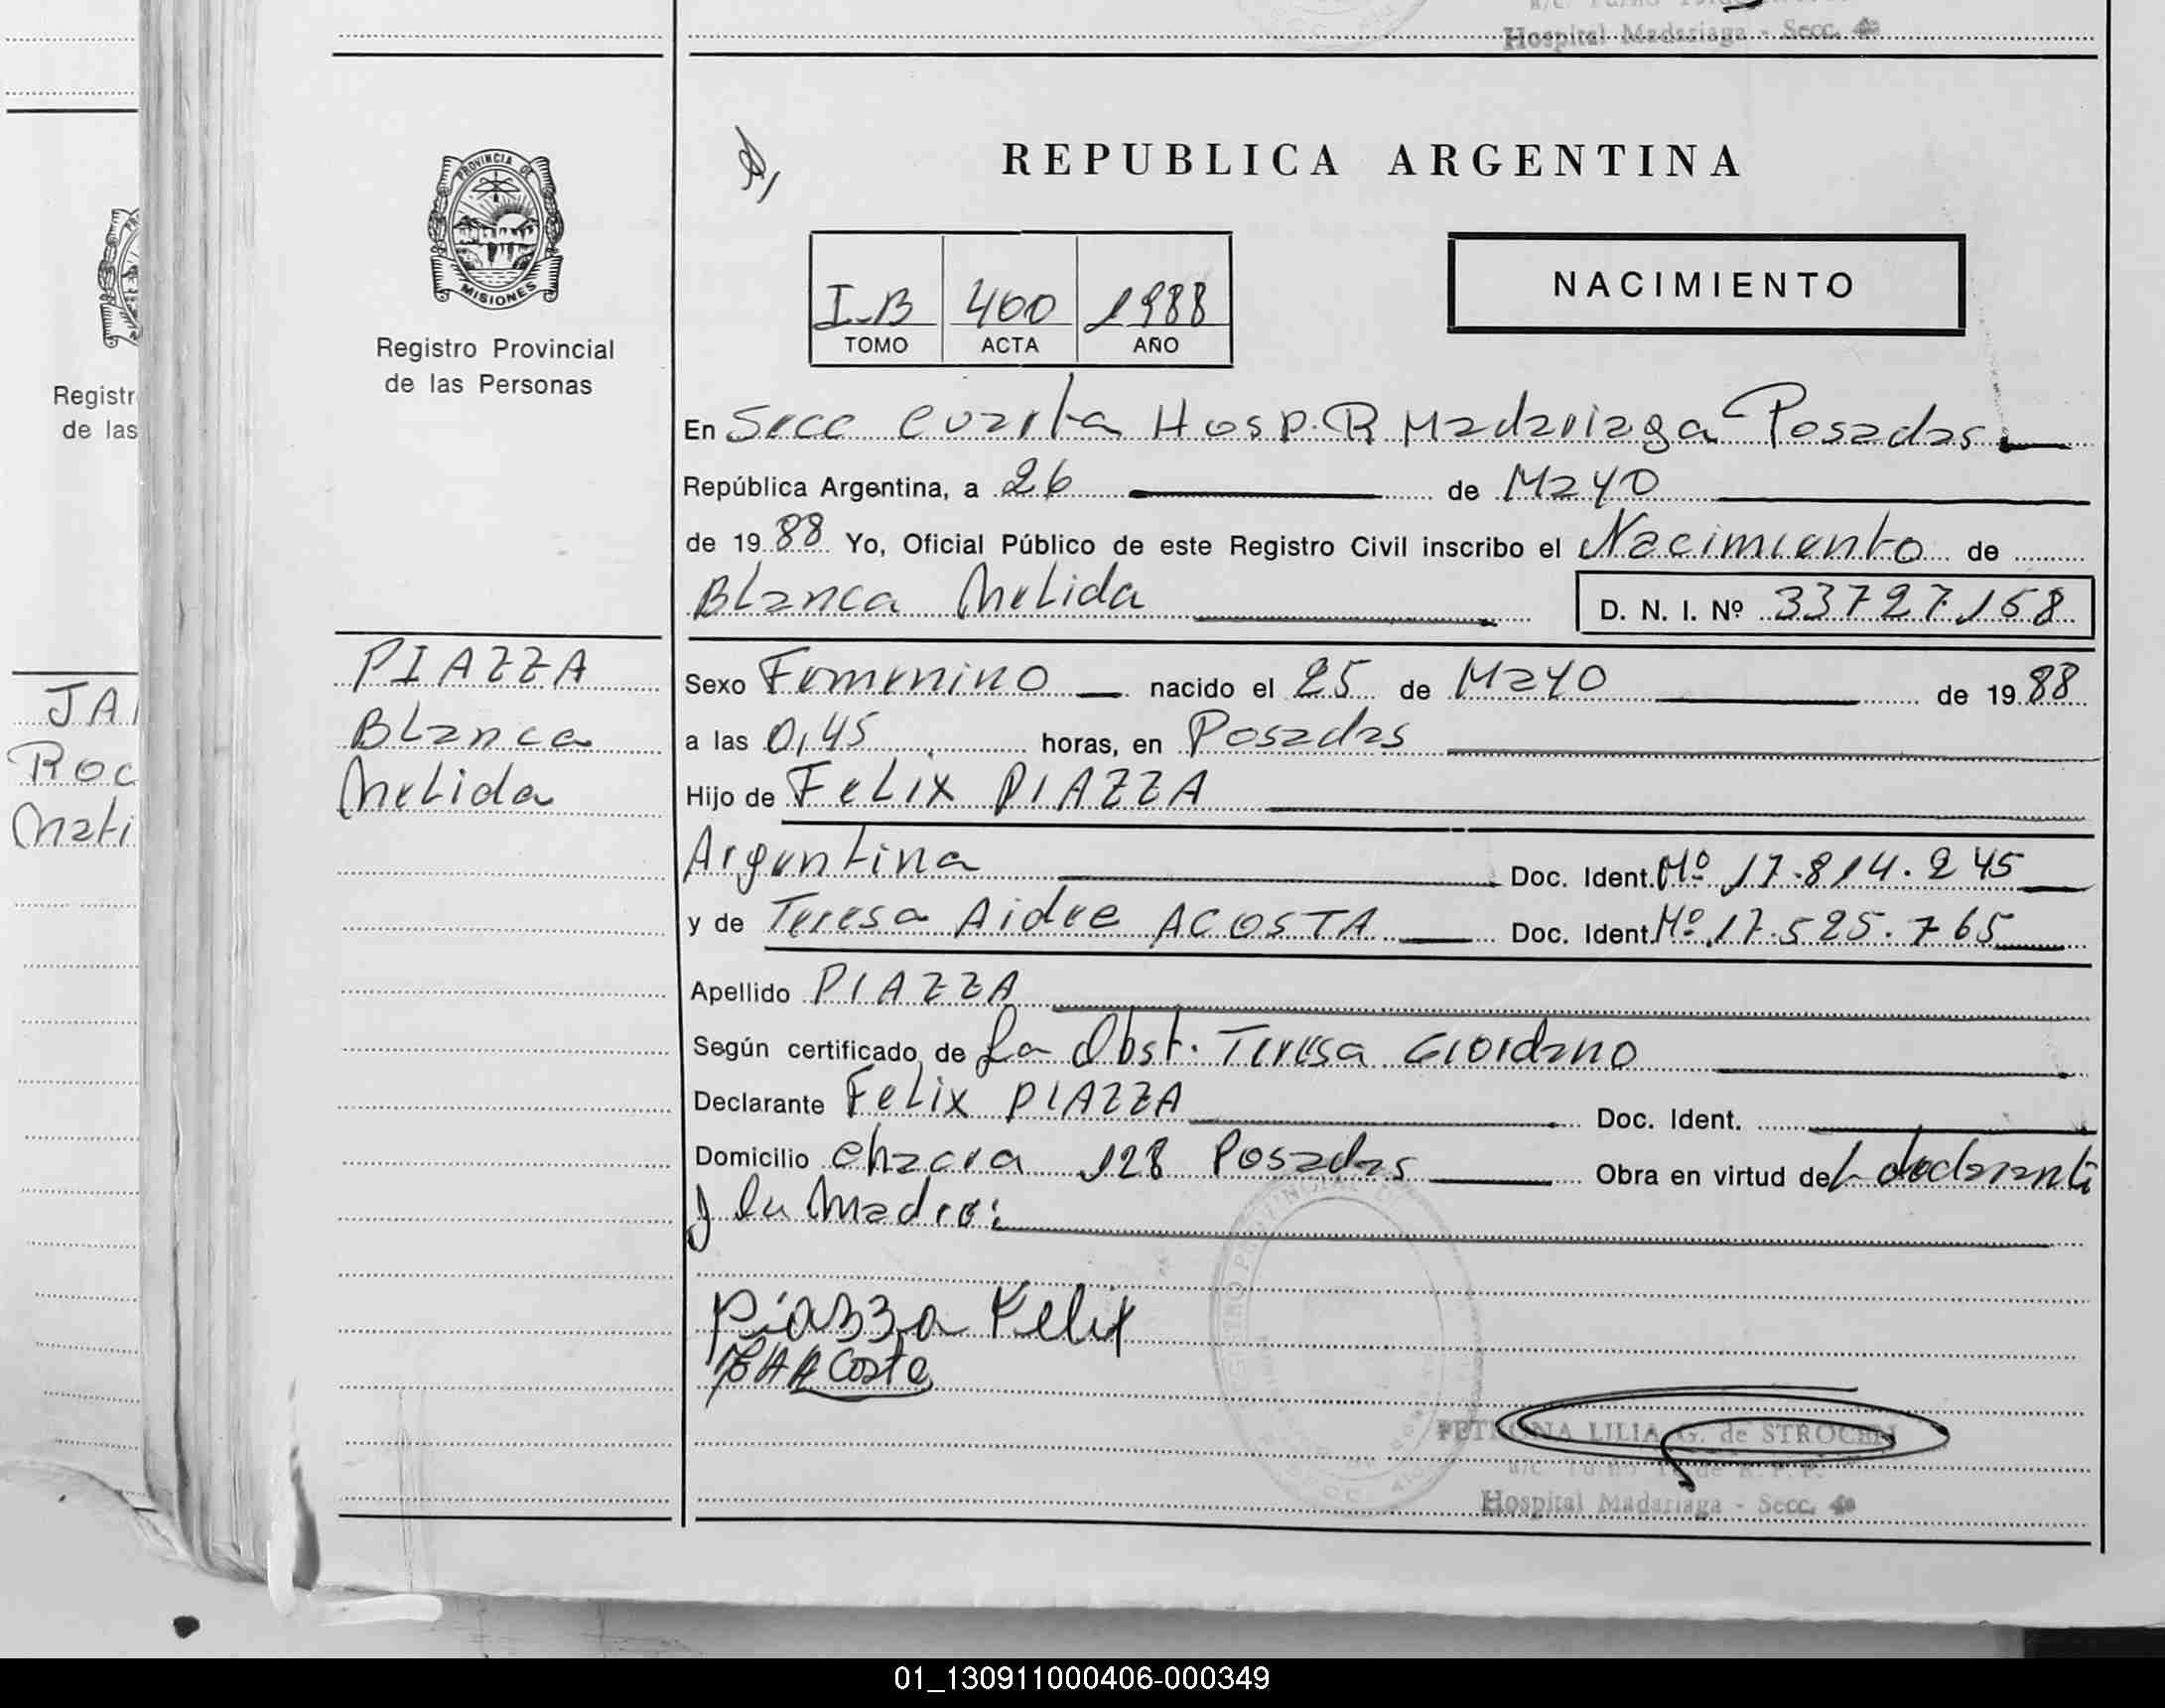 Hospital Madariaga - Secc. 4ª
REPUBLICA ARGENTINA
PROVINCIA DE
MISIONES
Registro Provincial
de las Personas
NACIMIENTO
I-B 400 1988
TOMO ACTA AÑO
En Secc cuarta Hosp. R Madariaga Posadas
República Argentina, a 26 de Mayo
de 1988 Yo, Oficial Público de este Registro Civil inscribo el Nacimiento de
Blanca Melida D. N. I. Nº 33727.158
PIAZZA
Blanca
Melida
Sexo Femenino nacido el 25 de Mayo de 1988
a las 0,45 horas, en Posadas
Hijo de Felix PIAZZA
Argentina Doc. Ident. Mº 17.814.245
y de Teresa Aidee ACOSTA Doc. Ident. Mº 17.525.765
Apellido PIAZZA
Según certificado de La Obst. Teresa Giordano
Declarante Felix PIAZZA Doc. Ident.
Domicilio chacra 128 Posadas Obra en virtud de L declarante
y la Madre:
Piazza Felix
PETRONA LILIA G. de
a/c Turno Tarde R. P. P.
Hospital Madariaga - Secc. 4ª
Registr
de las
JA
Roc
Mati
01_130911000406-000349